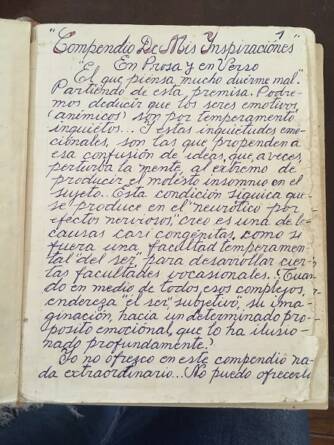 1
"Compendio De Mis Inspiraciónes"
En Prosa y en Verso
"El que piensa mucho duerme mal."
Partiendo de esta premisa. Podre-
mos deducir que los seres emotivos,
(animicos) son por temperamento
inquietos... Y estas inquietudes emo-
cionales, son las que propenden a
esa confusión de ideas, que, a veces,
perturba la mente, al extremo de
producir el molesto insomnio en el
sujeto.. Esta condición siquica que
se produce en el "neurótico por
efectos nerviosos," creo es una de las
causas casi congénitas, como si
fuera una, facultad temperamen-
tal "del ser," para desarrollar cier-
tas facultades vocasionales. ¿Cuan-
do en medio de todos esos complejos,
endereza "el ser" subjetivo", su ima-
ginación, hacia un determinado pro-
posito emociónal, que lo ha ilusio-
nado profundamente?
Yo no ofresco en este compendio na-
da extraordinario... No puedo ofrecerlo